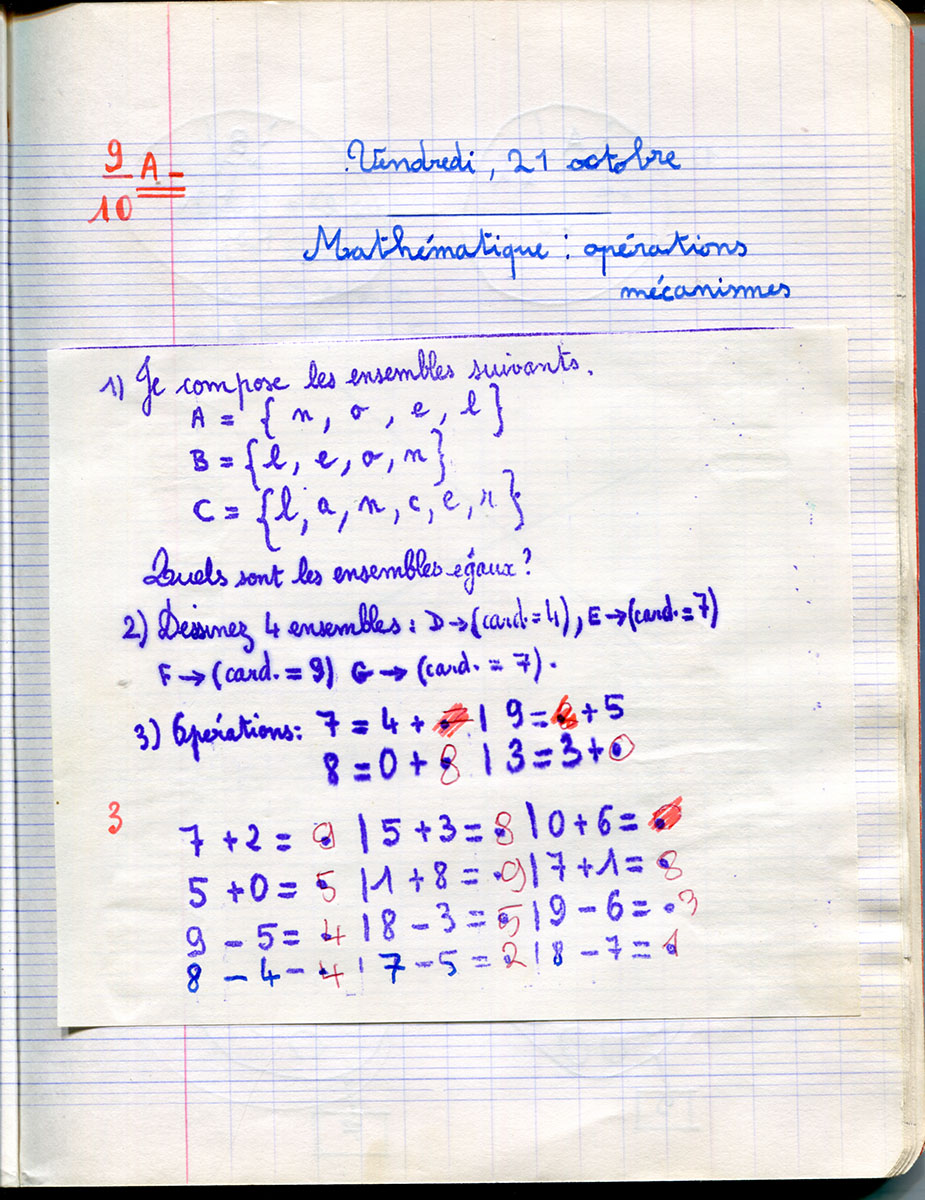 9
10 A-
Vendredi, 21 octobre
Mathématique : opérations
mécanismes
1) Je compose les ensembles suivants.
A = { n, o, e, l }
B = { l, e, o, n }
C = { l, a, n, c, e, r }
Quels sont les ensembles égaux?
2) Dessinez 4 ensembles : D → (card. = 4), E → (card. = 7)
F → (card. = 9) G → (card. = 7).
3) Opérations: 7 = 4 + . | 9 = . + 5
8 = 0 + 8 | 3 = 3 + 0
3
7 + 2 = 9 | 5 + 3 = 8 | 0 + 6 = .
5 + 0 = 5 | 1 + 8 = 9 | 7 + 1 = 8
9 - 5 = 4 | 8 - 3 = 5 | 9 - 6 = 3
8 - 4 - 4 | 7 - 5 = 2 | 8 - 7 = 1